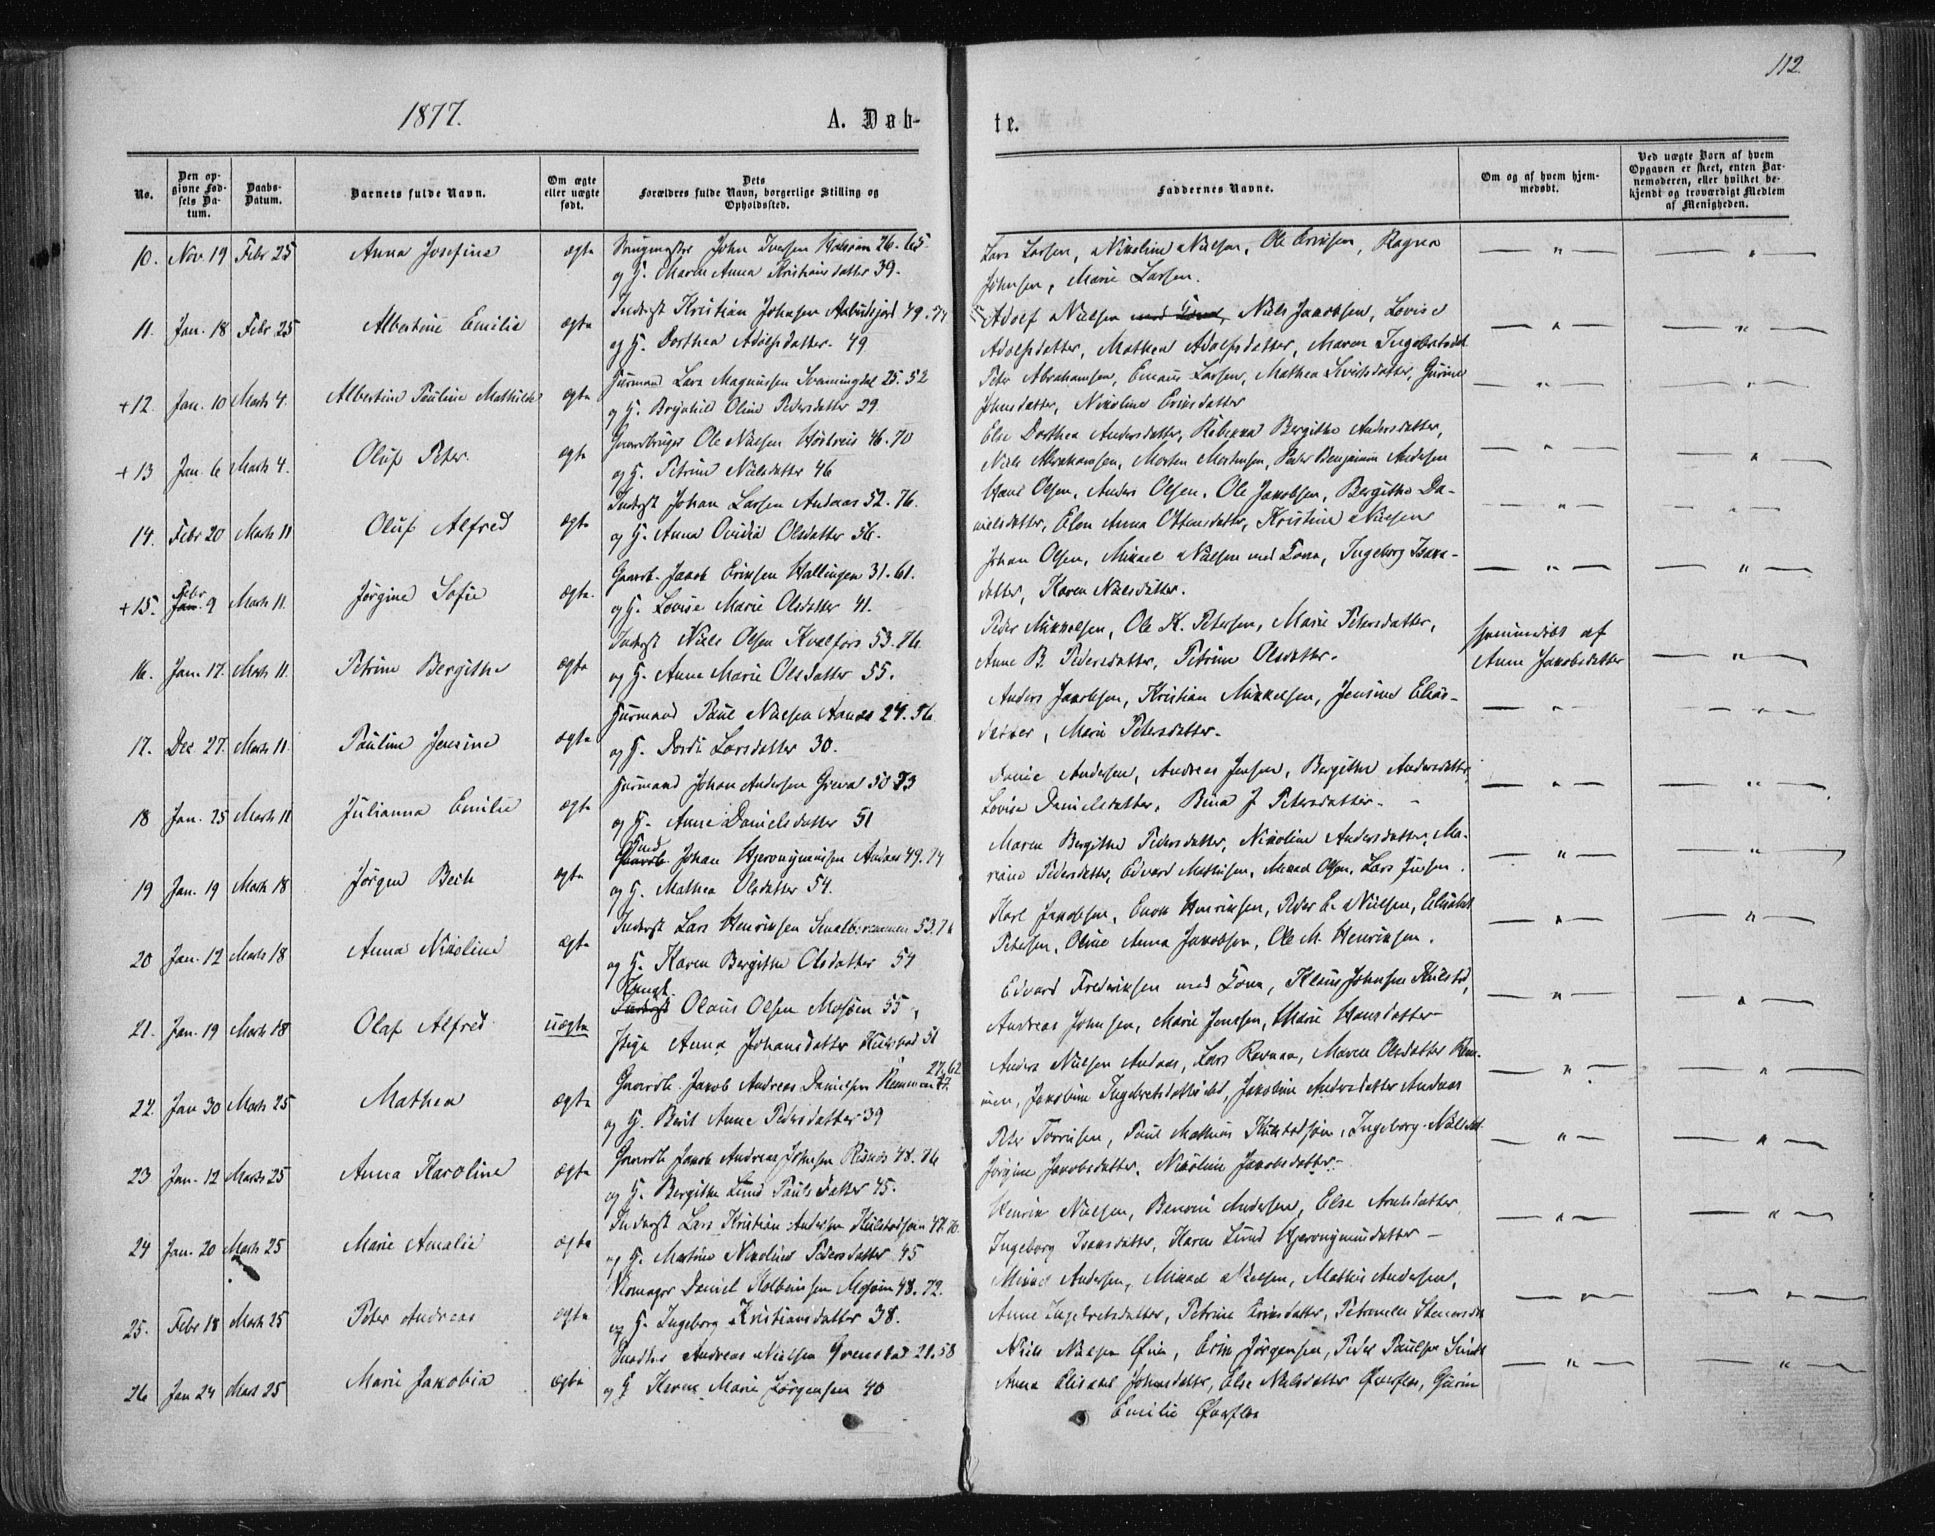 112.
1877.
A. Døb-
te.
No.
Den op-
givne Fød-
sels Da-
tum.
Daabs-
Datum.
Barnets fulde Navn.
Om ægte
eller uægte
født.
Dets
Forældres fulde Navn, borgerlige Stilling og
Opholdssted.
Faddernes Navne.
Om og af hvem hjem-
medøbt.
Ved uægte Børn af hvem
Opgaven er skeet, enten Bar-
nemoderen, eller hvilket be-
kjendt og troværdigt Medlem
af Menigheden.
10. Nov 19 Febr 25 Anna Josefine ægte John Iversen 26. 65.
og H. Maren Anna Kristiansdatter 39.
Lars Larsen, Nikoline Nielsen, Ole Eriksen, Ragna
Johnsen, Marie Larsen.
11. Jan. 18 Febr. 25 Albertine Emilie ægte Inderst Kristian Johnsen 49. 74
og H. Dorthea Adolfsdatter. 49
Adolf Nielsen med Kone, Niels Jakobsen, Lovise
Adolfsdatter, Mathea Adolfsdatter, Maren Ingebrtsdt.
+12. Jan. 10 Marts 4. Albertine Pauline Mathilde ægte Huusmand Lars Magnussen 25. 52
og H. Brynhild Oline Pedersdatter 29.
Peter Abrahamsen, Larsen, Mathea Sivertsdatter, Gurine
Johnsdatter, Nikoline Eriksdatter
+13 Jan. 6 Marts 4. Oluf Peter ægte Gaardbruger Ole Nielsen 46. 70
og H. Petrine Nielsdatter 46
Else Dorthea Andersdatter, Rebekka Bergitte Andersdatter,
Niels Abrahamsen, Morten Mortensen, Peder Benjamin Andersen
14. Febr 20 Marts 11 Oluf Alfred ægte Inderst Johan Larsen Andaas 52. 76.
og H. Anna Ovidia Olsdatter 56.
Hans Olsen, Anders Olsen, Ole Jakobsen, Bergithe Da-
nielsdatter, Elen Anna Ottensdatter, Kristine Nielsen
+15. Febr Jan. 9 Marts 11. Jørgine Sofie ægte. Gaardb. Jakob Eriksen Hallingen 31. 61.
og H. Lovise Marie Olsdatter 41.
Johan Olsen, Mikael Nielsen med Kone, Ingeborg Isaks-
datter, Karen Nielsdatter.
16. Jan. 17. Marts 11. Petrine Bergithe ægte Inderst Niels Olsen Kvalfors 53. 76.
og H. Anne Marie Olsdatter 55.
Peder Mikkelsen, Ole K. Petersen, Marie Petersdatter,
Anne B. Pedersdatter, Petrine Olsdatter.
hjemmedøbt af
Anne Jakobsdatter
17. Dec 27. Marts 11. Pauline Jensine ægte Huusmand Paul Nielsen 24. 56.
og H. Dordi Larsdatter 30.
Anders Jakobsen, Kristian Mikkelsen, Jensine Elias-
datter, Marie Petersdatter.
18 Jan. 25 Marts 11 Julianna Emilie ægte Huusmand Johan Andersen 50 73
og H. Anne Danielsdatter 51
Andersen, Andreas Jensen, Bergithe Andersdatter,
Lovise Danielsdatter, Bina J. Petersdatter.
19 Jan. 19 Marts 18 Jørgen Bech ægte Ind Gaardb. Johan Hjeronymussen Andaas 49. 74
og H. Mathea Olsdatter 54.
Maren Bergithe Pedersdatter, Nikoline Andersdatter, Ma-
riane Pedersdatter, Edvard Mathisen, Mikael Olsen, Lars Jensen.
20 Jan. 12 Marts 18 Anna Nikoline ægte Inderst Lars Henriksen 53. 76
og H. Karen Bergithe Olsdatter 54
Karl Jakobsen, Enok Henriksen, Peder E. Nielsen, Elisabet
Petersen, Oline Anna Jakobsen, Ole M. Henriksen.
21. Jan. 19 Marts 18 Olaf Alfred uægte Inderst Olaus Olsen Mosjøen 55,
Pige Anna Johansdatter Kulstad 51
Edvard Frederiksen med Kone, Klaus Johnsen Kulstad,
Andreas Johnsen, Marie Jensen, Marie Hansdatter
22. Jan 30 Marts 25 Mathea ægte Gaardb. Jakob Andreas Danielsen Remmen 27. 62
og H. Berit Anne Pedersdatter 39
Anders Nielsen Andaas, Lars, Maren Olsdatter Rem-
men, Jakobine Ingebretsdatter ibd, Jakobine Andersdatter Andaas
23 Jan. 12 Marts 25 Anna Karoline ægte Gaardb. Jakob Andreas Johnsen 48. 76
og H. Bergithe Lund Paulsdatter 45.
Peter, Paul Mathias Kulstadsjøen, Ingeborg Nielsdt.
Jørgine Jakobsdatter, Nikoline Jakobsdatter
24 Jan. 20 Marts 25 Marie Amalie ægte Inderst Lars Kristian Andersen Kulstadsjøen 47. 76.
og H. Martine Nikoline Pedersdatter 45
Henrik Nielsen, Benoni Andersen, Else Arntsdatter,
Ingeborg Isaksdatter, Karen Lund Hjeronymusdatter
25. Febr 18 Marts 25 Peter Andreas ægte Skomager Daniel Mosjøen 48. 72.
og H. Ingeborg Kristiansdatter 38.
Mikael Andersen, Mikael Nielsen, Mathis Andersen,
Anne Ingebretsdatter, Petrine Eriksdatter, Petronelle
26 Jan 24 Mart 25 Marie Jakobia ægte Andreas Nielsen 21. 58
og H Karen Marie Jørgensen 40
Niels Nielsen, Erik Jørgensen, Peder Paulsen
Anna Elisabet Johnsdatter, Else Nielsdatter, Gurine
Emilie